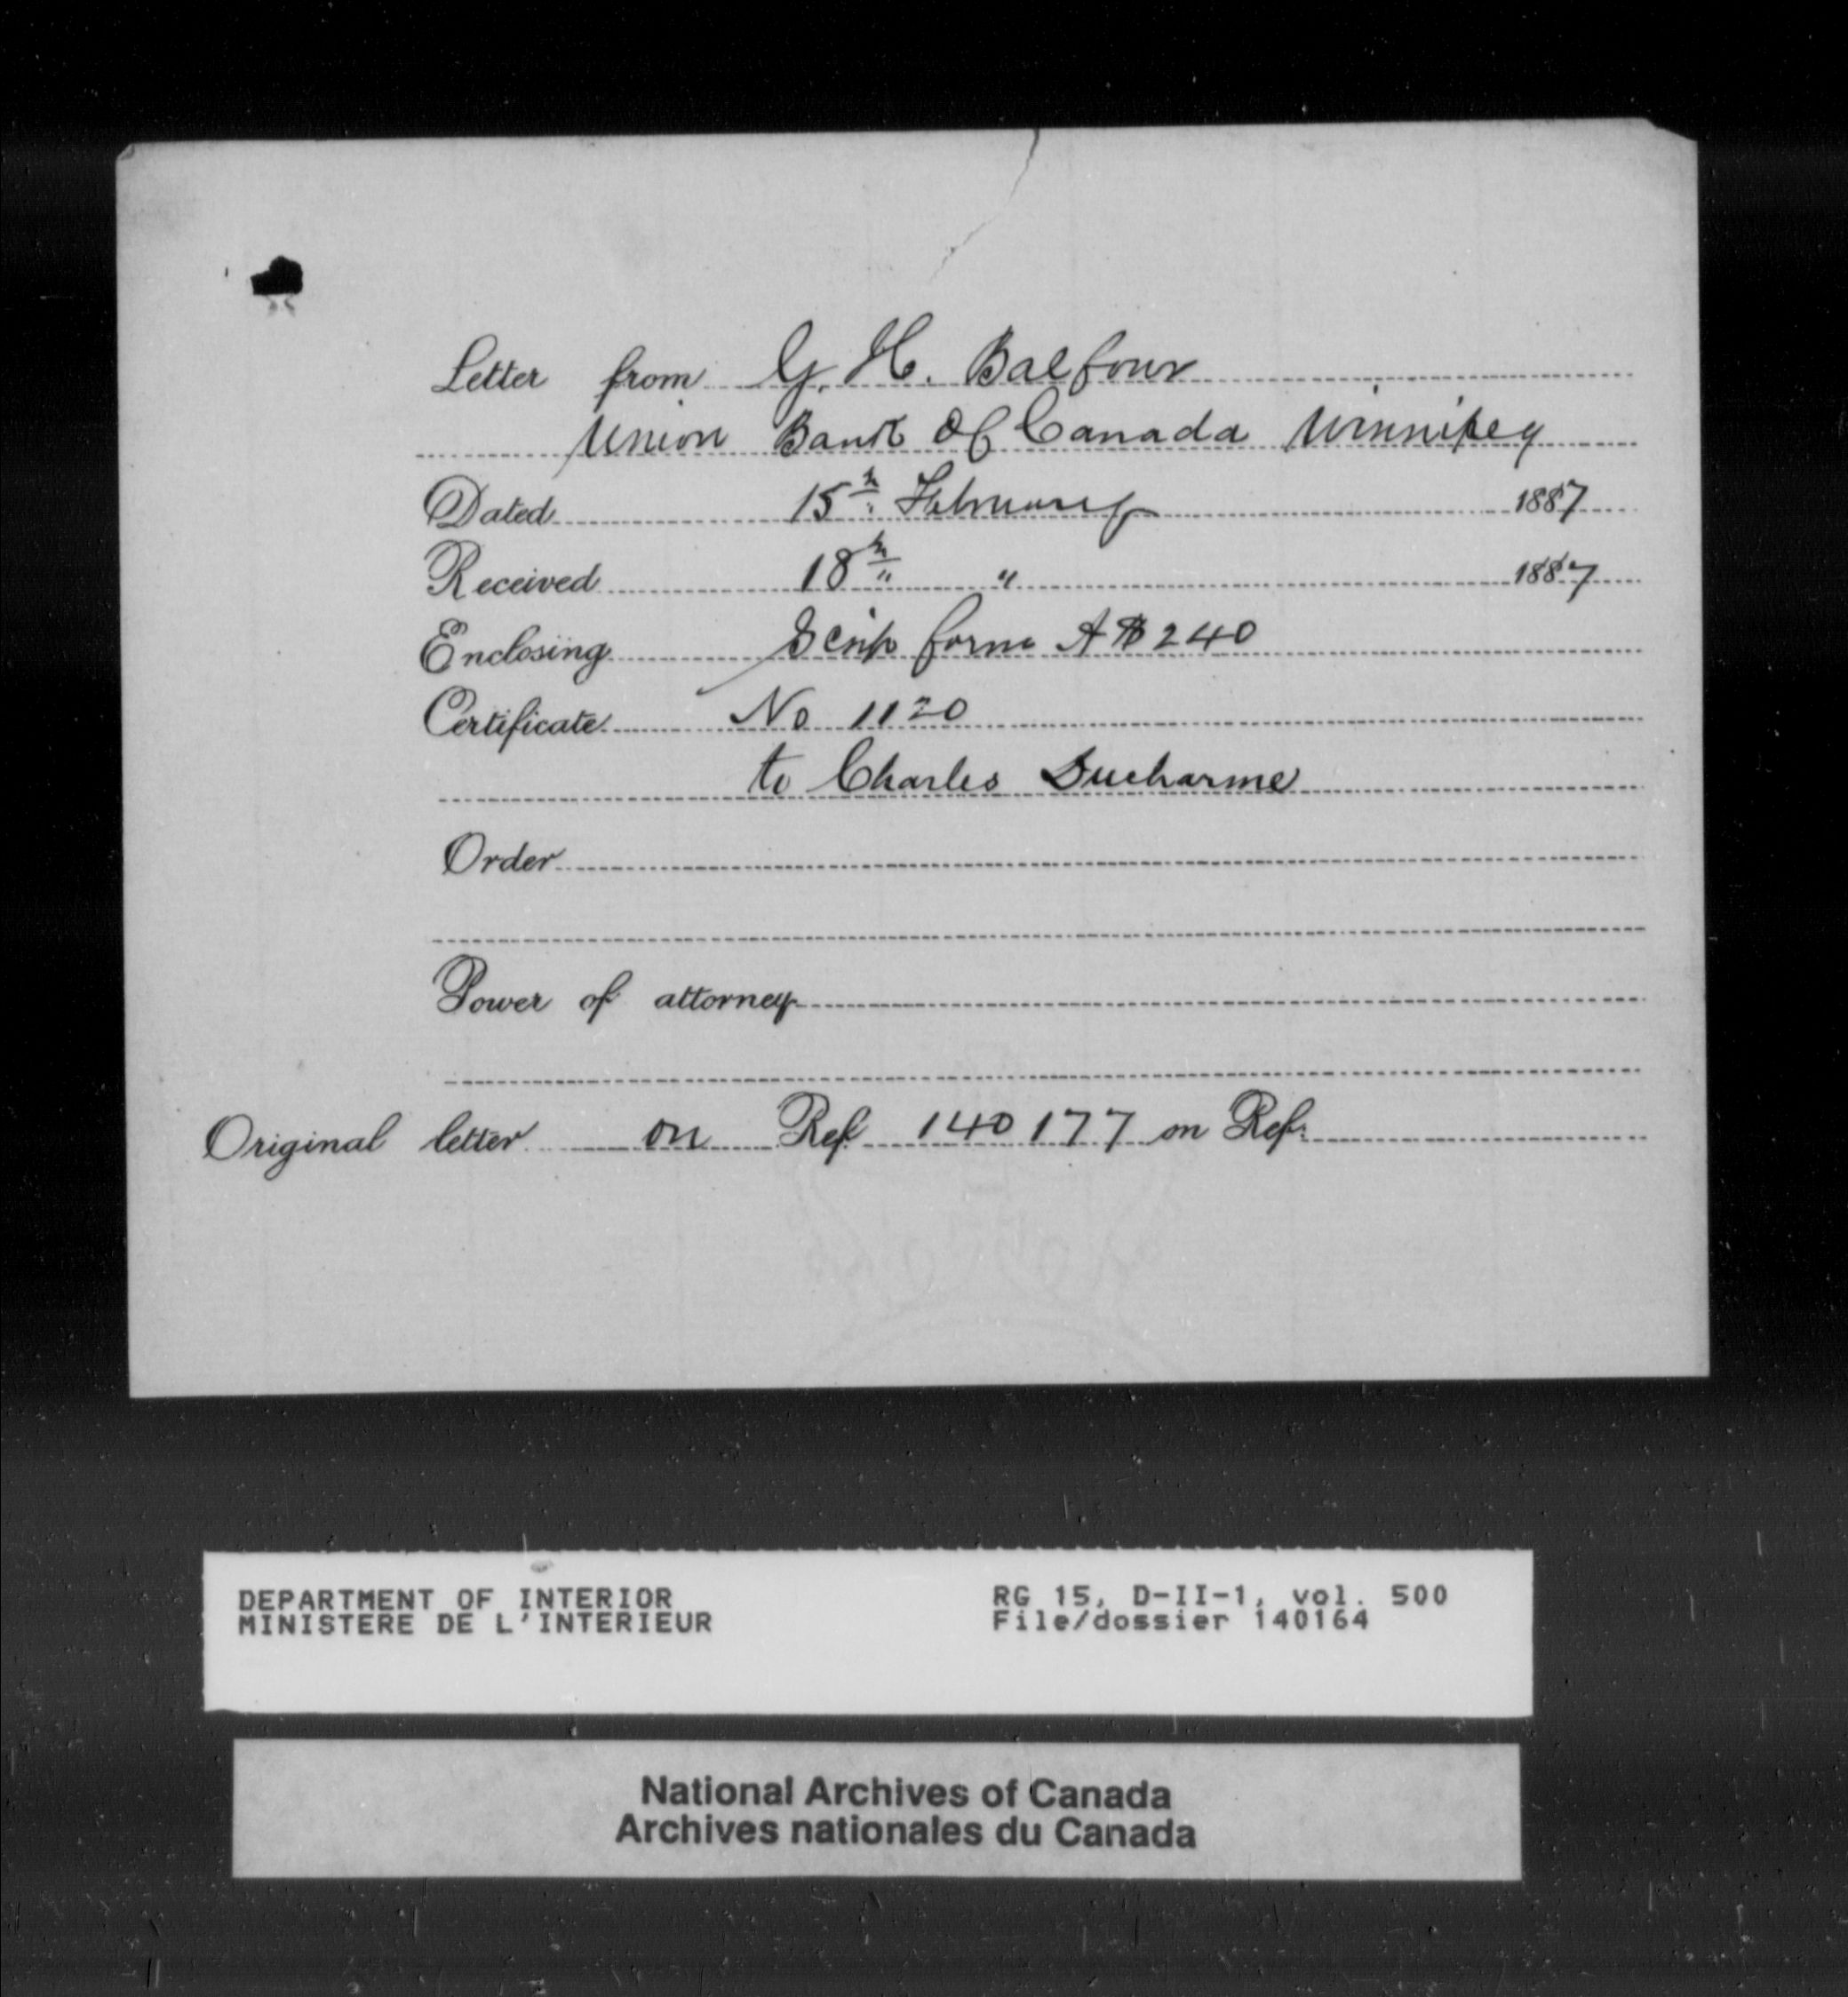 Letter from G. H. Balfour
Union Bank Of Canada Winnipeg
Dated 15th February 1887
Received 18th " " 1887
Enclosing Scrip form A $240
Certificate No 1120
to Charles Ducharme
Order
Power of attorney
Original letter on Ref 140177 on Ref.
DEPARTMENT OF INTERIOR
MINISTERE DE L'INTERIEUR
RG 15, D-II-1, vol. 500
File/dossier 140164
National Archives of Canada
Archives nationales du Canada